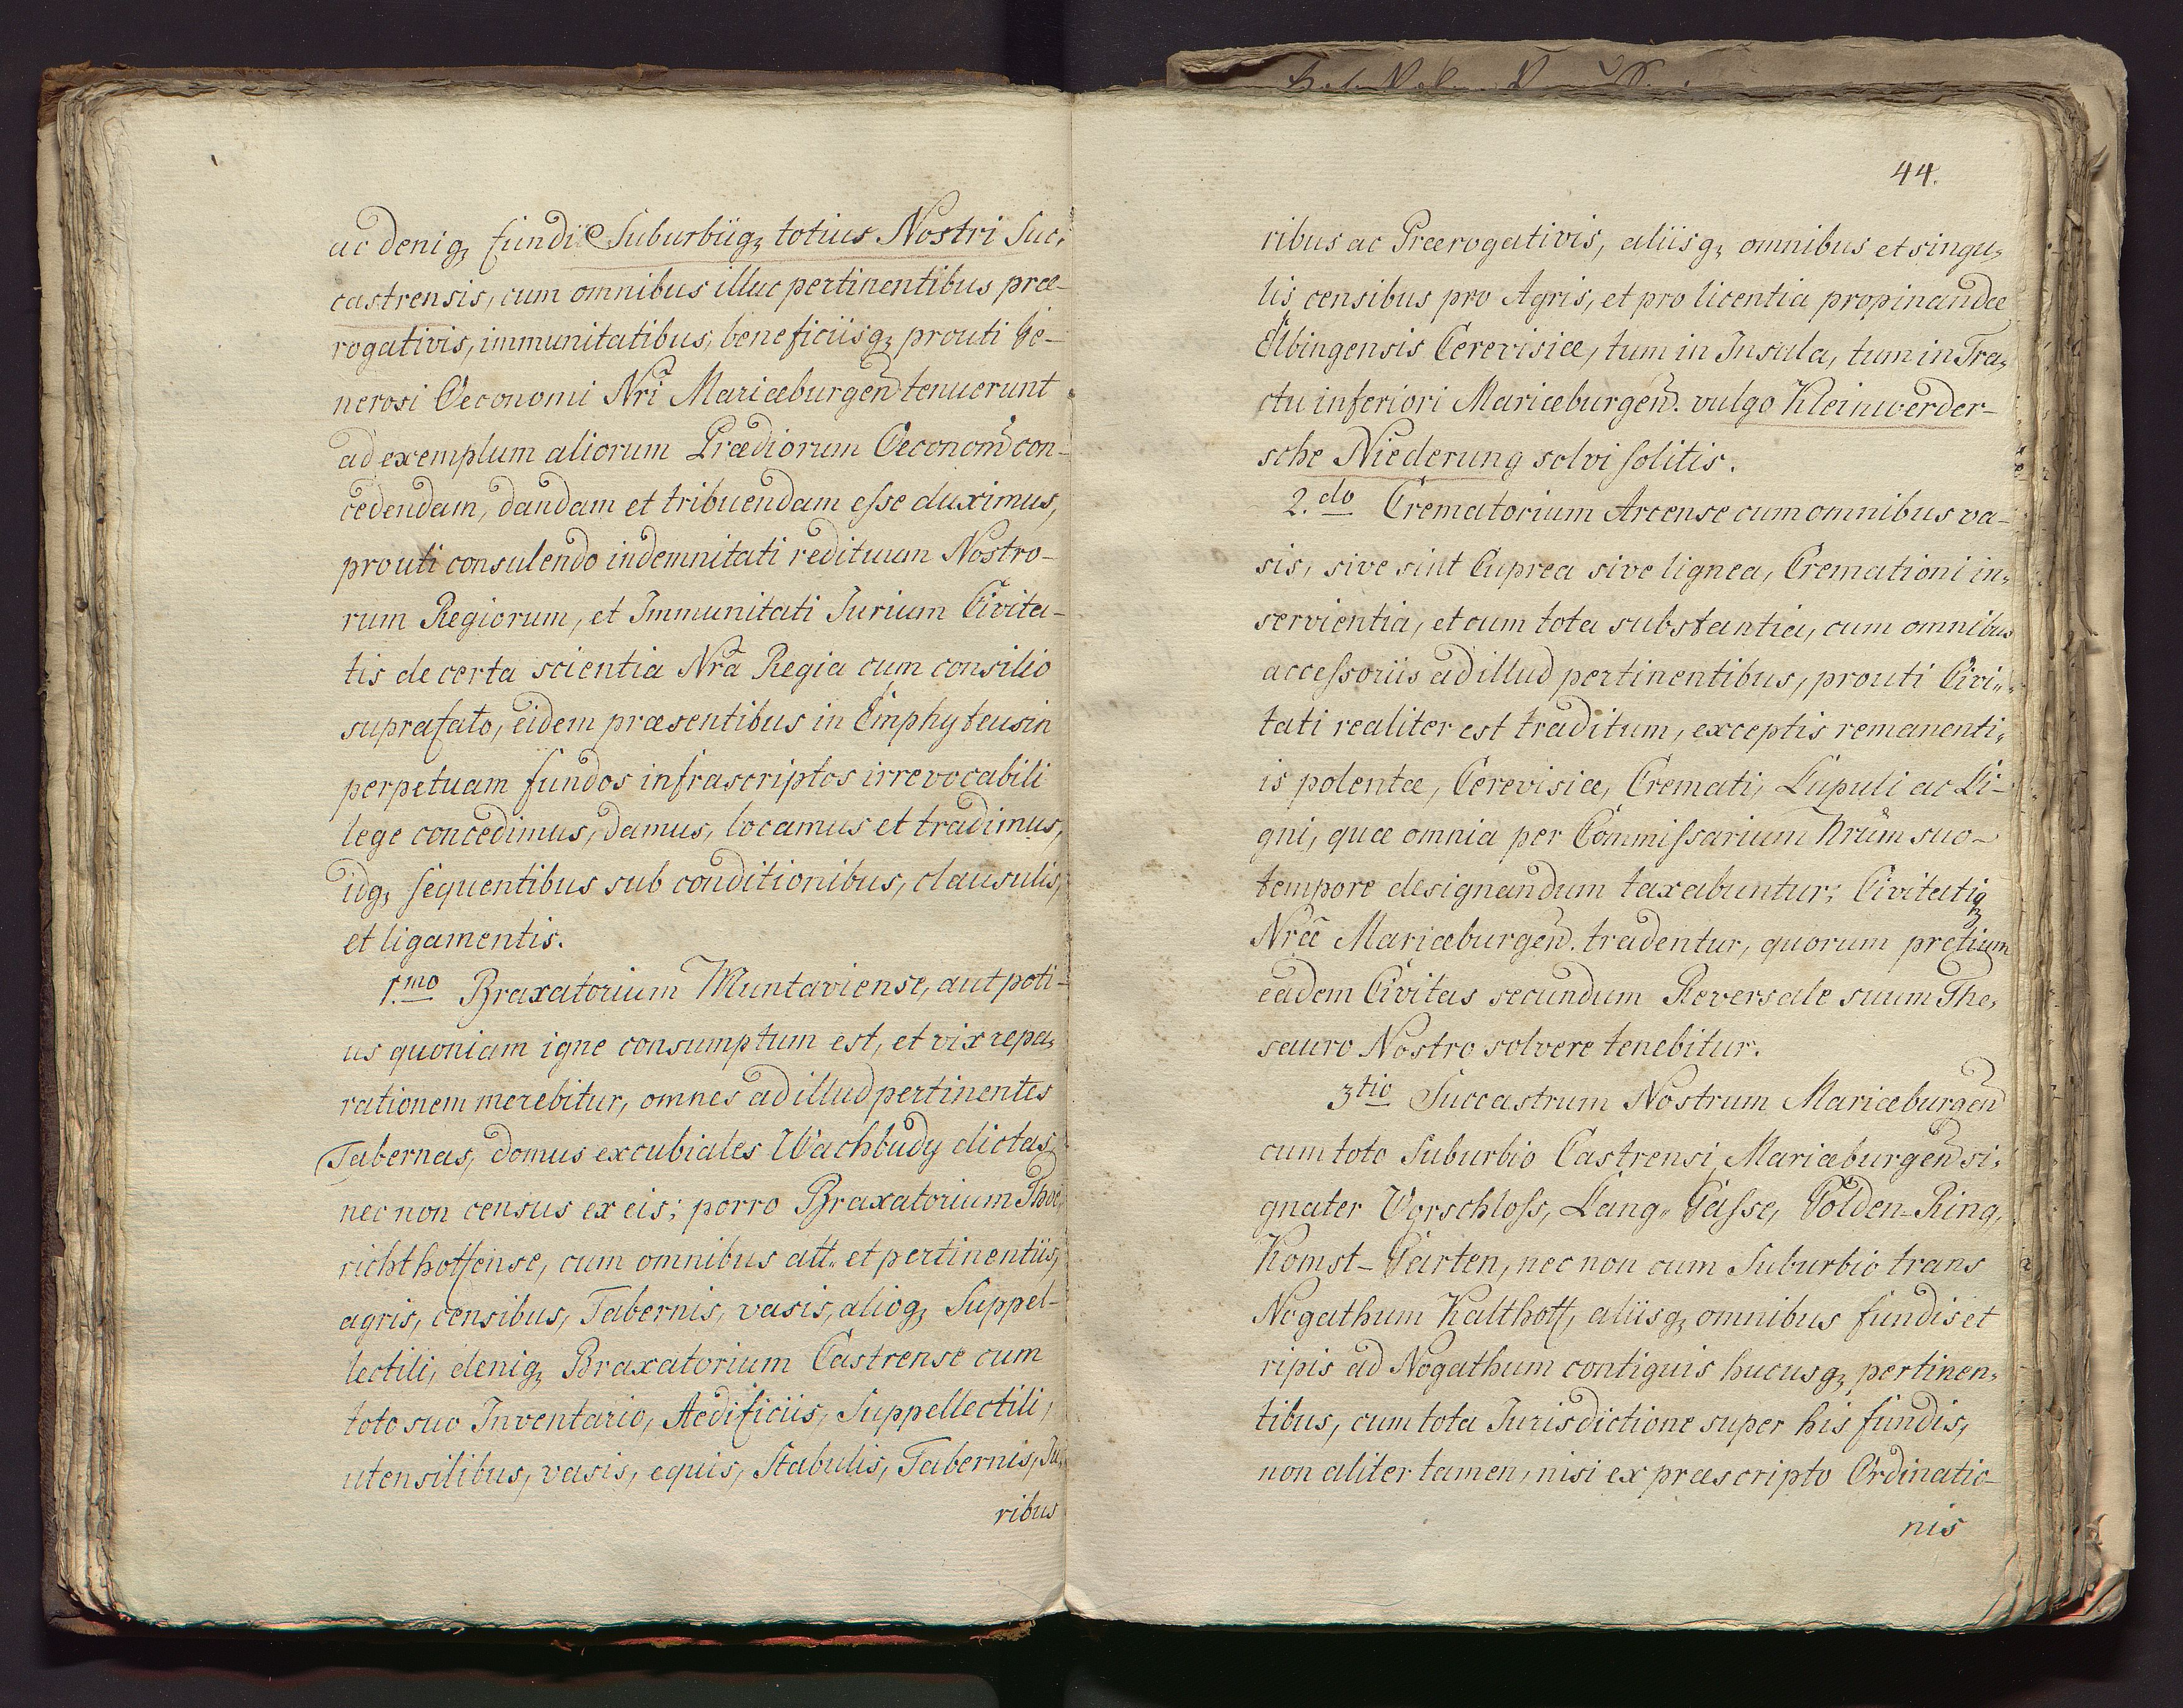 ac deniq, fundi e Suburbiiq, totius Nostri Suc,
castrensis, cum omnibus illuc pertinentibus præ-
rogativis, immunitatibus, beneficiisq, prouti Ge-
nerosi Oeconomi Nri Mariæburgen tenuerunt
ad exemplum aliorum Prædiorum Oeconom con-
cedendam, dandam et tribuendam esse duximus,
prouti consulendo indemnitati redituum Nostro-
rum Regiorum, et Immunitati Jurium Civita-
tis de certa scientia Nra Regia cum consilio
suprafato, eidem præsentibus in Emphyteusin
perpetuam fundos infrascriptos irrevocabili
lege concedimus, damus, locamus et tradimus,
idq, sequentibus sub conditionibus, clausulis,
et ligamentis.
1.mo Braxatorium Muntaviense, aut poti-
us quoniam igne consumptum est, et vix repa,
rationem merebitur, omnes ad illud pertinentes
Tabernas, domus excubiales Wachbudy dictas,
nec non census ex eis; porro Braxatorium Thöe,
richthoffense, cum omnibus att,, et pertinentiis,
agris, censibus, Tabernis, vasis, alioq, Suppel-
lectili, deniq, Braxatorium Castrense cum
toto suo Inventario, Aedificiis, Suppellectili,
utensilibus, vasis, equis, Stabulis, Tabernis, Ju,
ribus
44.
ribus ac Prærogativis, aliisq, omnibus et singu,
lis censibus pro Agris, et pro licentia propinandæ
Elbingensis Cerevisiæ, tum in Insula, tum in Tra,
ctu inferiori Mariæburgen. vulgo Kleinwerder-
sche Niederung solvi solitis.
2.do Crematorium Arcense cum omnibus va-
sis, sive sint Cuprea sive lignea, Cremationi in,
servientia, et cum tota substantia, cum omnibus
accessoriis ad illud pertinentibus, prouti Civi,,
tati realiter est traditum, exceptis remanenti,
is polentæ, Cerevisiæ, Cremati, Lupuli ac Li-
gni, quæ omnia per Commissarium Nrum suo-
tempore designandum taxabuntur; Civitatiq,
Nræ Mariæburgen. tradentur, quorum pretium
eadem Civitas secundum Reversale suum The,
sauro Nostro solvere tenebitur.
3tio Succastrum Nostrum Mariæburgen
cum toto Suburbio Castrensi Mariæburgen si,
gnater Vorschloss, Lang,, Gasse, Golden-Ring,
Komst-Garten, nec non cum Suburbio trans
Nogathum Kalthoff, aliisq, omnibus fundis et
ripis ad Nogathum contiguis hucusq, pertinen,
tibus, cum tota Jurisdictione super his fundis,
non aliter tamen, nisi ex præscripto Ordinatio-
nis